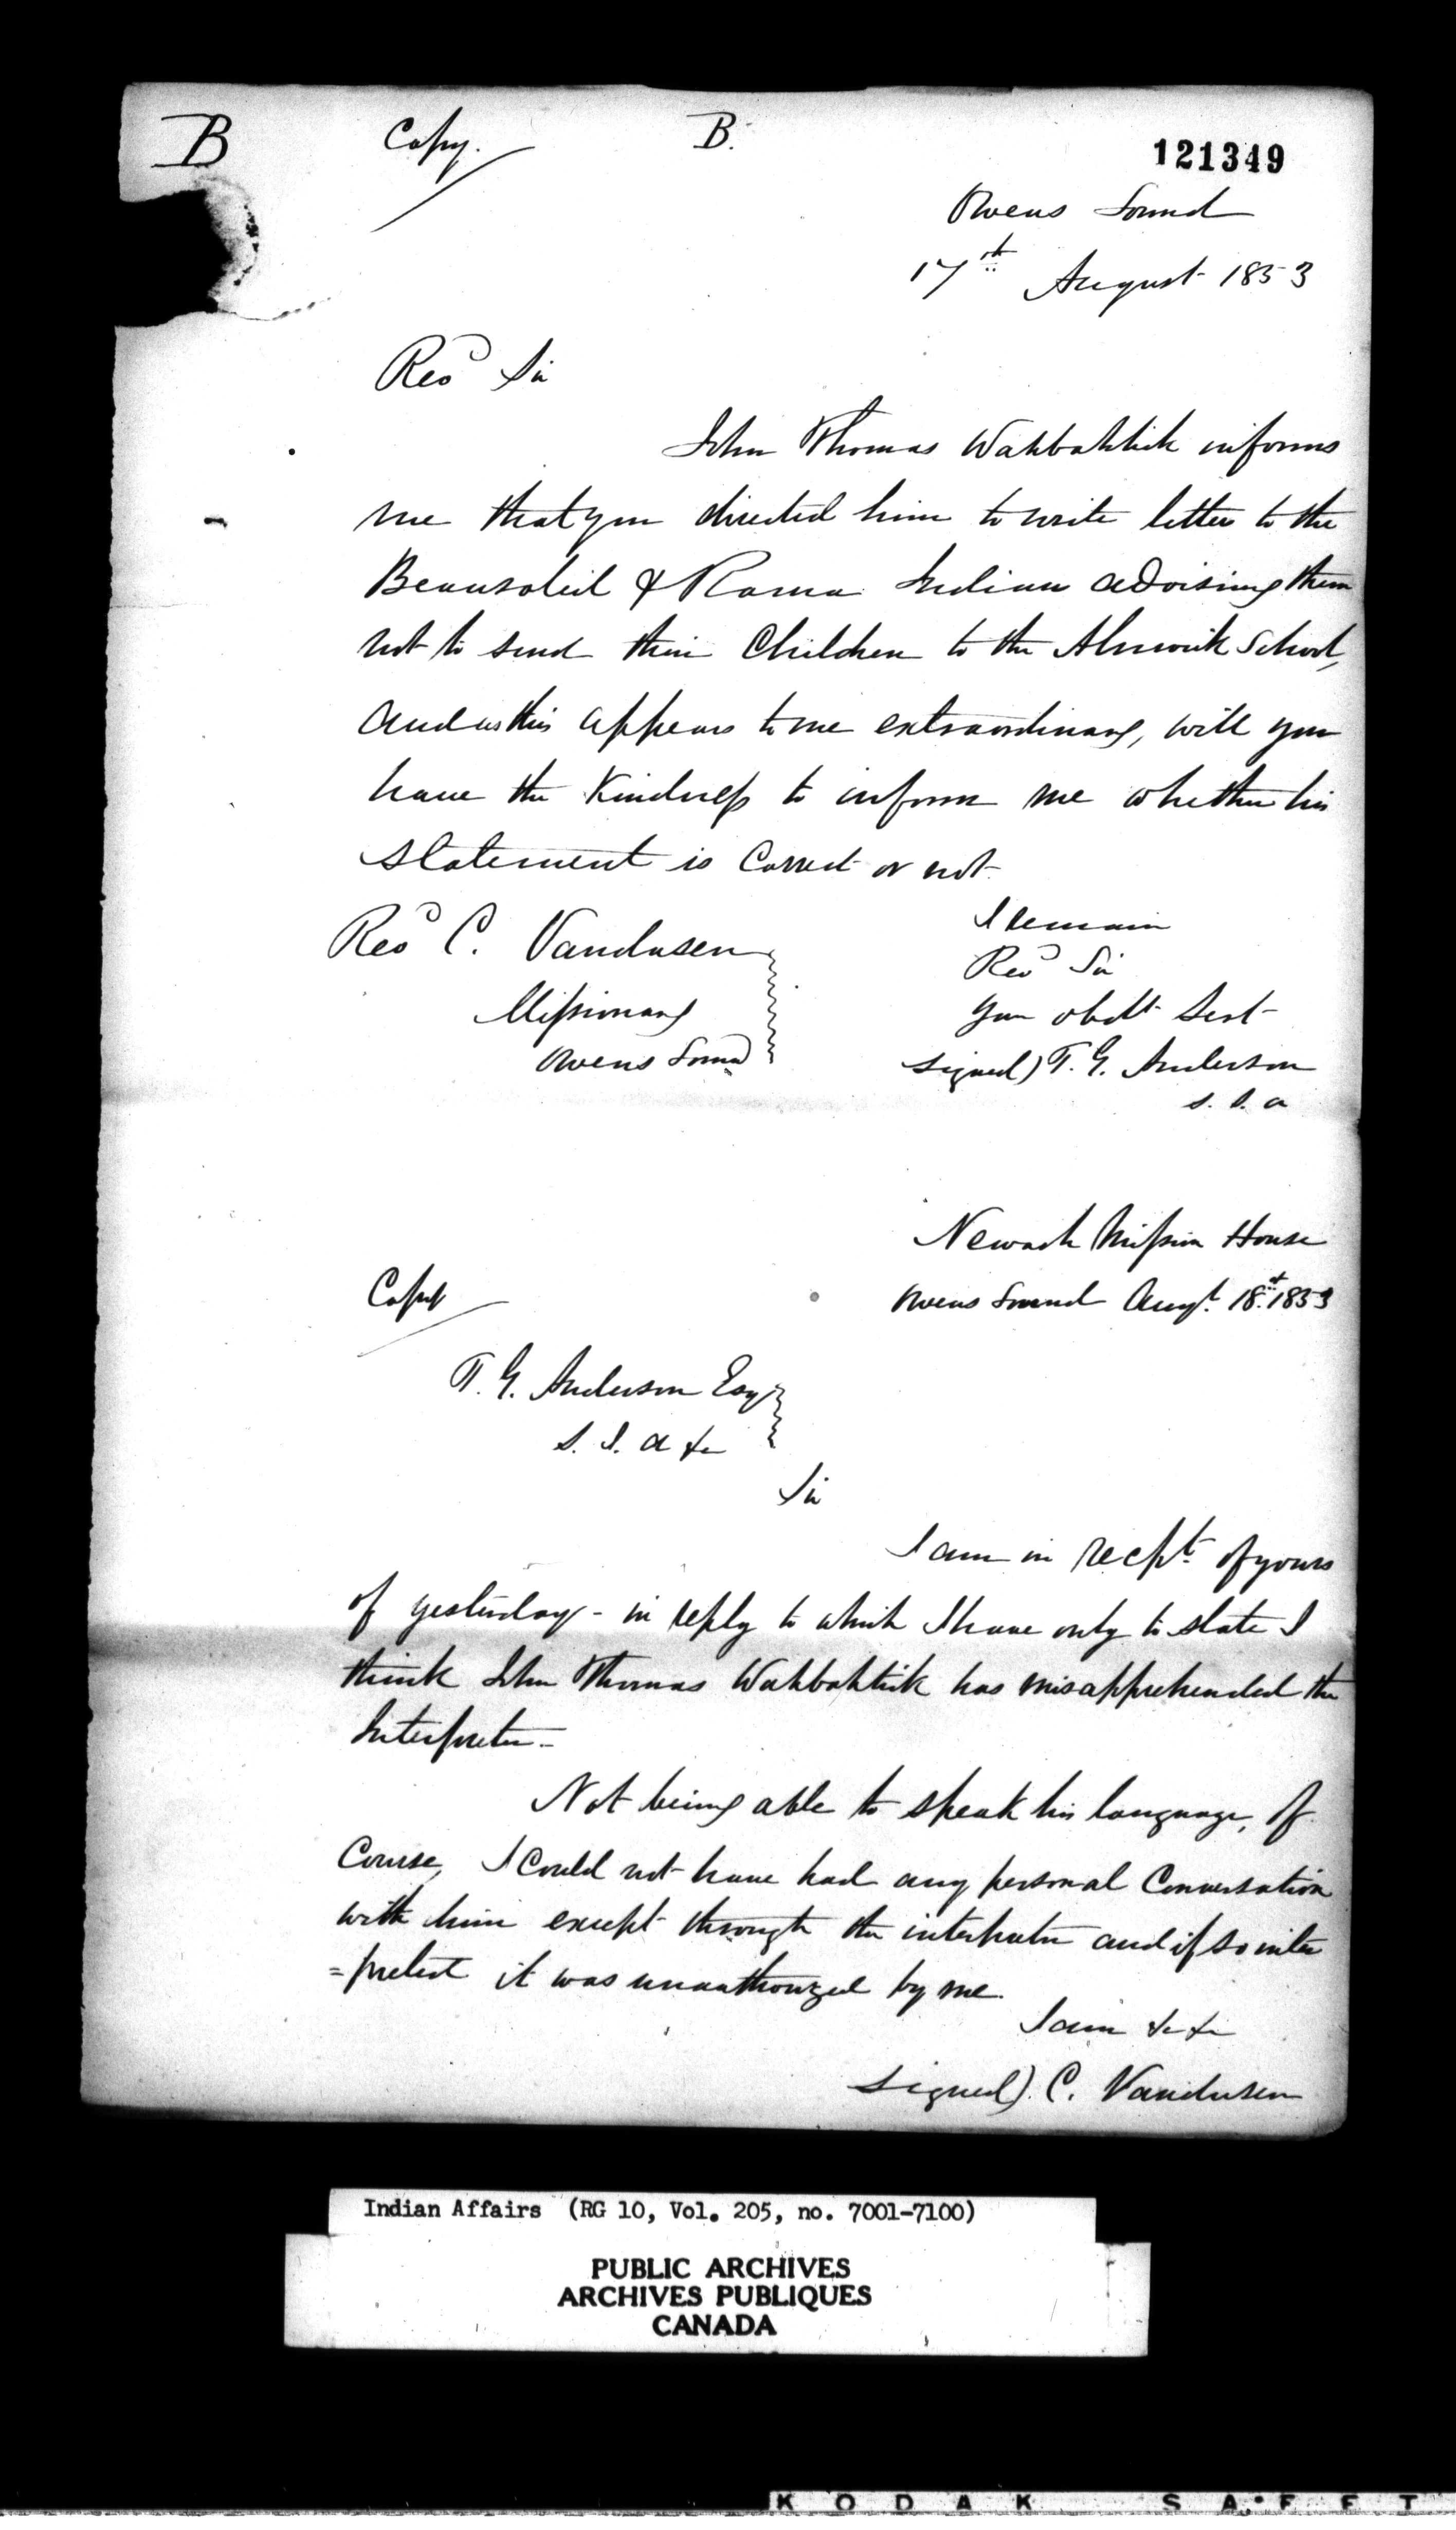 B Copy. B. 121349
Owens Sound
17th August 1853
Revd Sir
John Thomas Wahbahtik informs
me that you directed him to write letter to the
Beausoleil & Rama Indians advising them
not to send their Children to the Alnwick School,
and as this appears to me extraordinary, will you
have the Kindness to inform me whether his
statement is Correct or not.
I remain
Revd Sir
Your obdt Servt
signed) T. G. Anderson
S. I. A
Revd C. Vandusen
Missionary
Owens Sound
Newash Mission House
Owens Sound Augt. 18th 1853
Copy
T. G. Anderson Esqr
S. I. A &c
Sir
I am in recpt. of yours
of yesterday - in reply to which I have only to state I
think John Thomas Wahbahtik has misapprehended the
Interpreter -
Not being able to speak his language, of
Course, I Could not have had any personal Conversation
with him except through the interpreter and if so inter
=preted it was unauthorized by me.
I am &c &c
signed) C. Vandusen
Indian Affairs (RG 10, Vol. 205, no. 7001-7100)
PUBLIC ARCHIVES
ARCHIVES PUBLIQUES
CANADA
KODAK SAFET